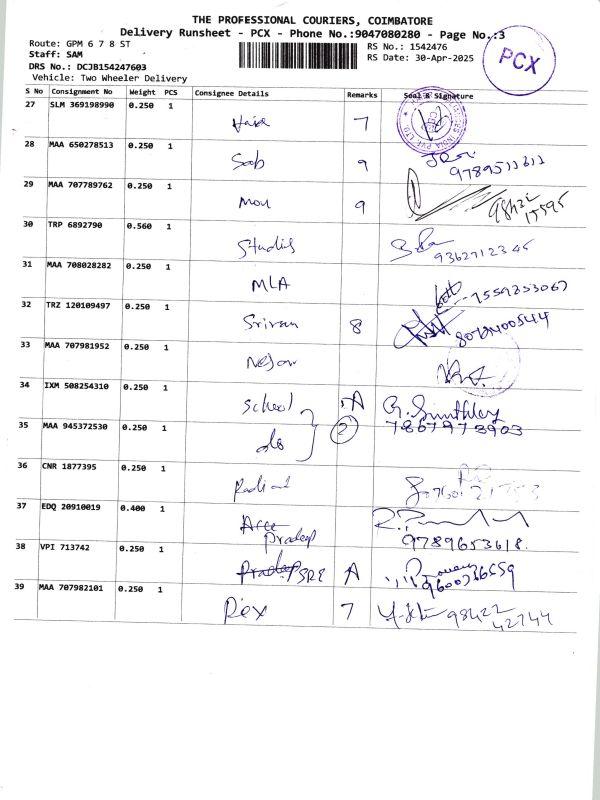 THE PROFESSIONAL COURIERS, COIMBATORE
Delivery Runsheet - PCX - Phone No.:9047080280 - Page No.:3
Route: GPM 6 7 8 ST
RS No.: 1542476
Staff: SAM
RS Date: 30-Apr-2025
DRS No.: DCJB154247603
Vehicle: Two Wheeler Delivery
PCX
S No Consignment No Weight PCS Consignee Details Remarks Seal & Signature
27 SLM 369198990 0.250 1 7
28 MAA 650278513 0.250 1 Sab 9
9789511611
29 MAA 707789762 0.250 1 Mou 9
98422
17595
30 TRP 6892790 0.560 1 Studis
9362712345
31 MAA 708028282 0.250 1 MLA
7559353067
32 TRZ 120109497 0.250 1 Sriram 8
33 MAA 707981952 0.250 1
34 IXM 508254310 0.250 1 School A G. Smithley
7867973903
35 MAA 945372530 0.250 1 do 2
36 CNR 1877395 0.250 1 Radiant
37 EDQ 20910019 0.400 1 Pradeep
9789653618.
38 VPI 713742 0.250 1 Pradeep SRE A
9600766559
39 MAA 707982101 0.250 1 Rex 7 98422
42744